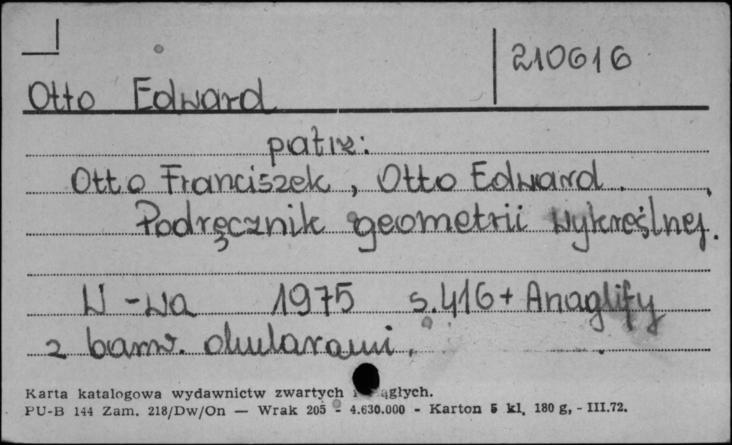 210616
Otto Edward
patrz:
Otto Franciszek, Otto Edward.
Podręcznik geometrii wykreślnej.
W-wa 1975 s.416+ Anaglify
z barw. okularami.
Karta katalogowa wydawnictw zwartych i ciągłych.
PU-B 144 Zam. 218/Dw/On — Wrak 205 - 4.630.000 - Karton 5 kl. 180 g, - III.72.